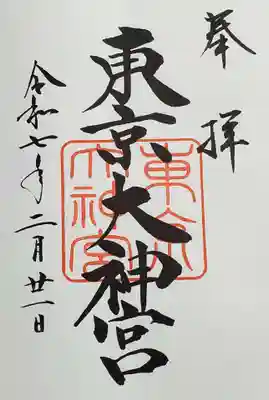 奉拝
東京大神宮
東京大神宮
令和七年二月廿一日